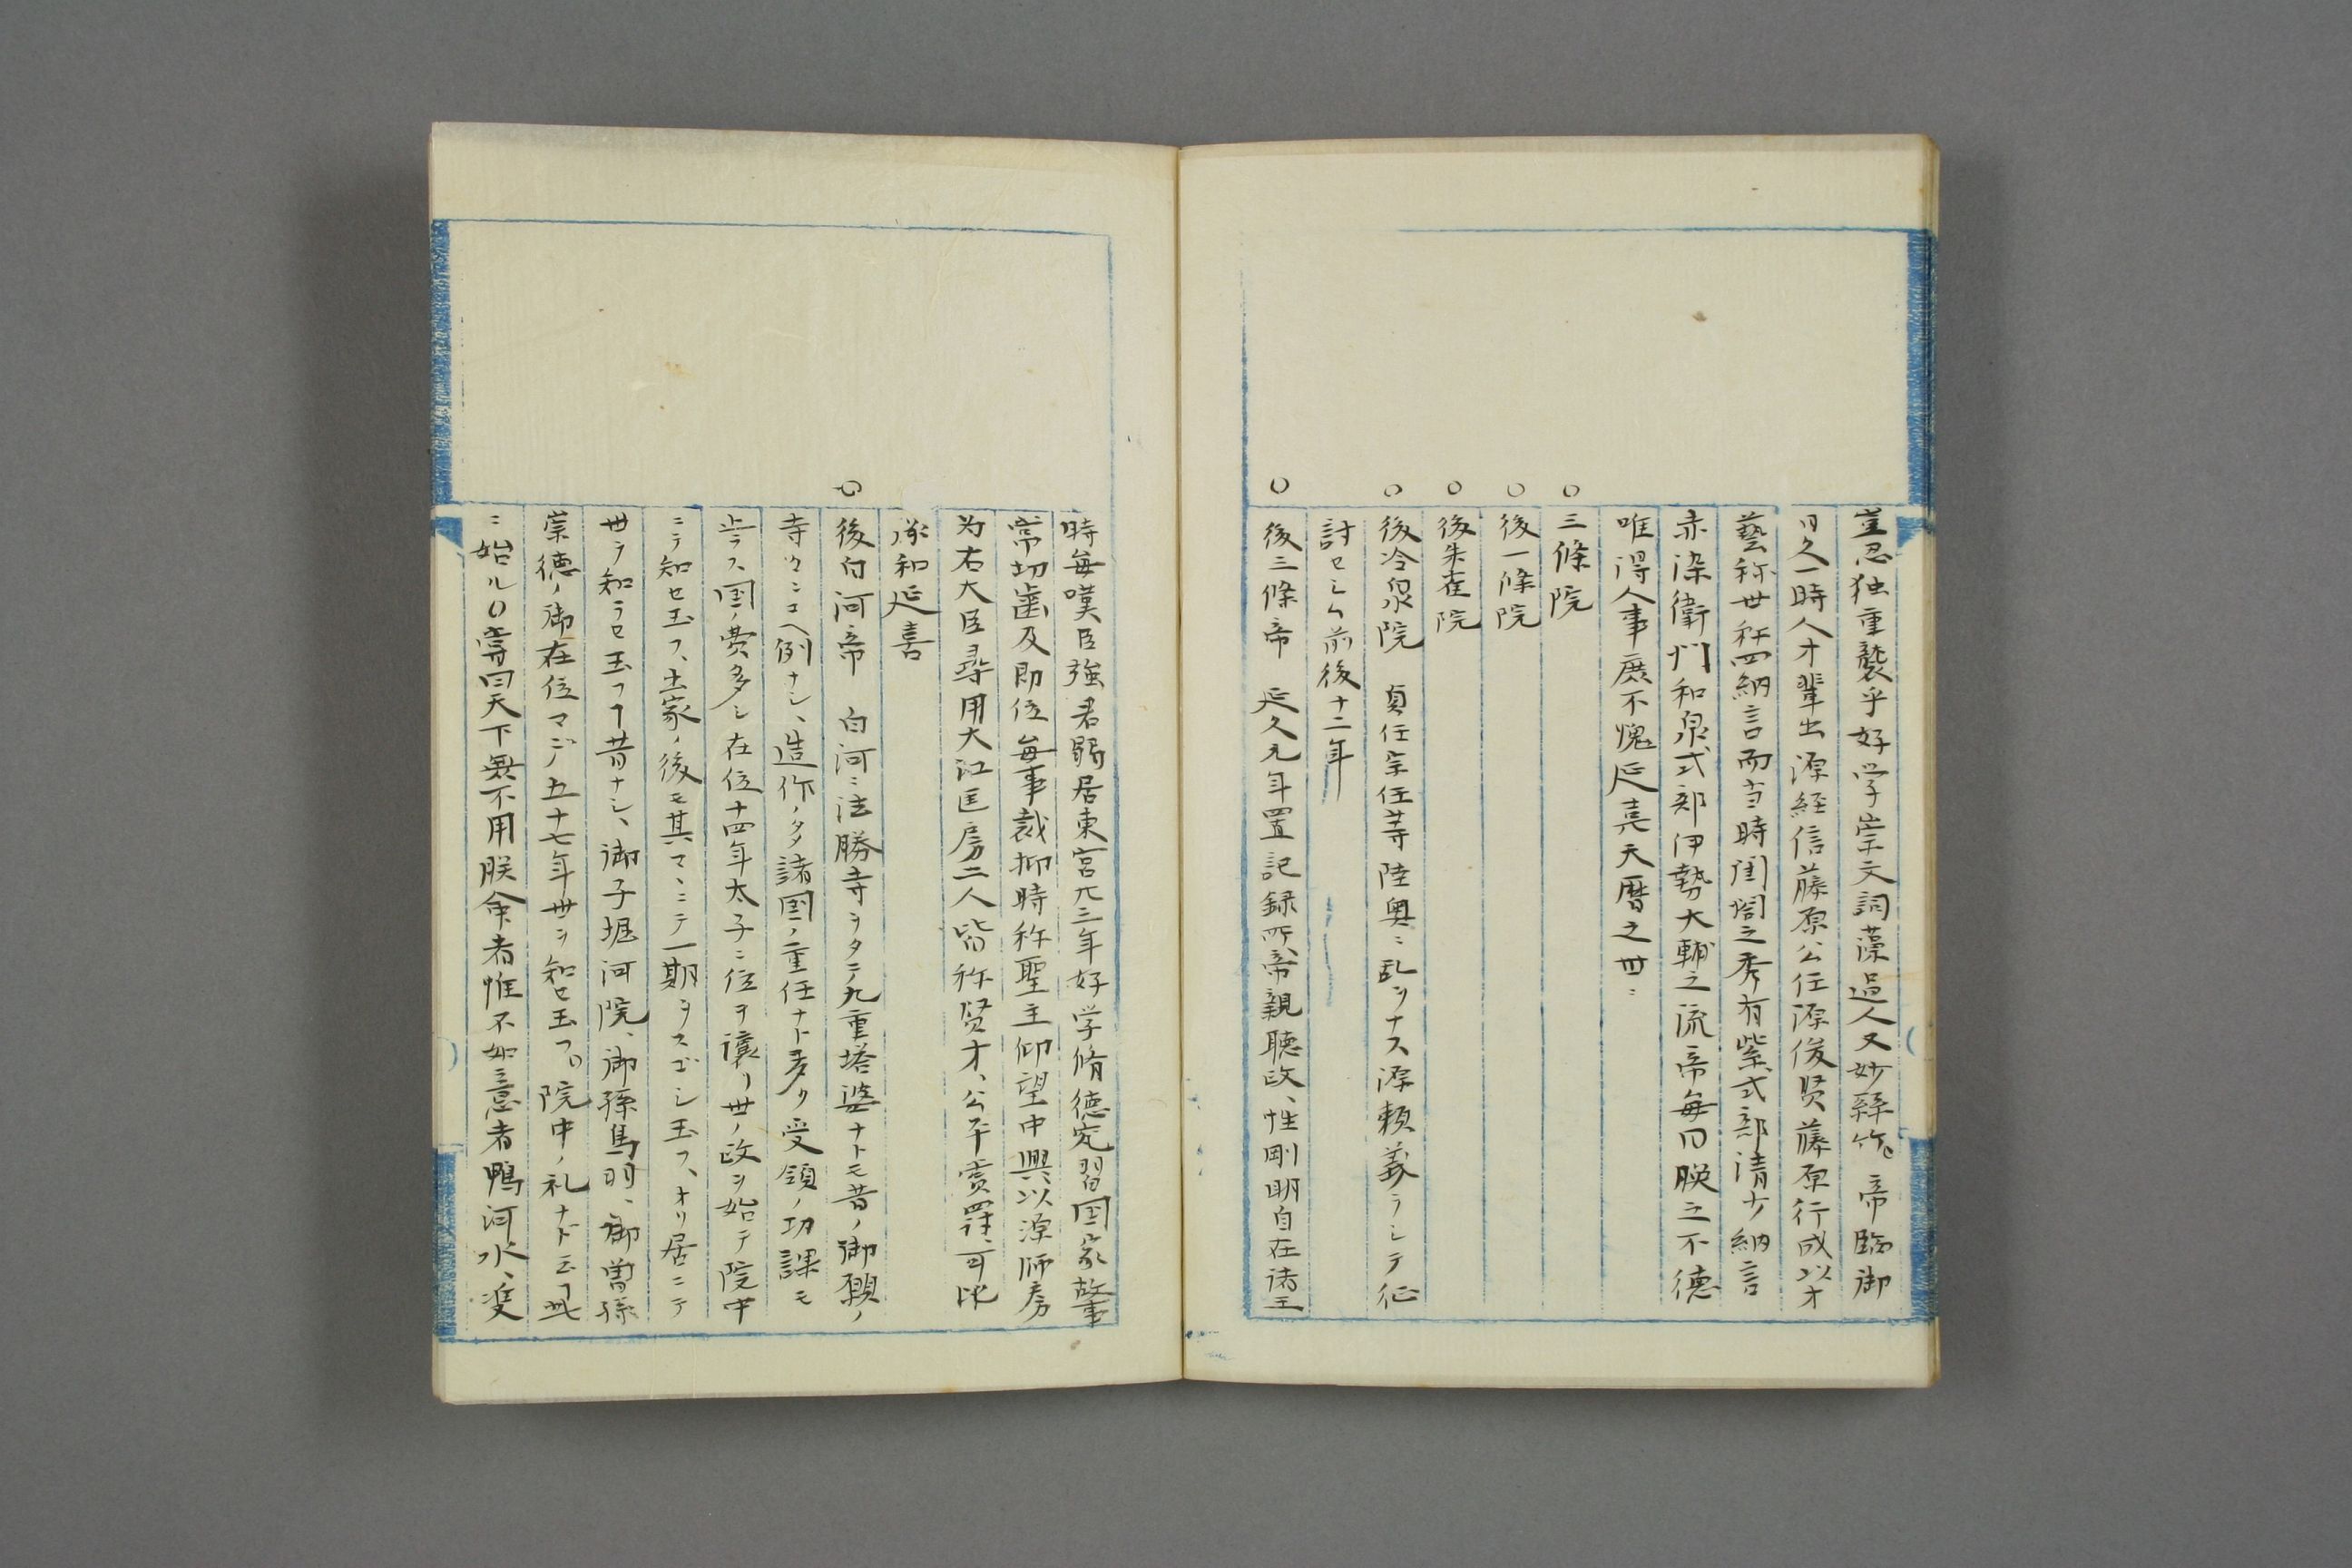 豈忍独重襲乎好学崇文詞藻過人又妙絲竹。帝臨御
日久一時人才輩出源経信藤原公任源俊賢藤原行成以才
藝称世称四納言而当時閨閤之秀有紫式部清少納言
赤染衛門和泉式部伊勢大輔之流帝毎曰朕之不徳
唯得人事庶不愧延喜天暦之世ニ
○三條院
○後一條院
○後朱雀院
○後冷泉院 貞任宗任等陸奥ニ乱ヲナス源頼義ヲシテ征
討セシム前後十二年
○後三條帝 延久元年置記録所、帝親聴政、性剛明自在諸王
時毎嘆臣強君弱居東宮廿三年好学脩徳究習国家故事
常切歯及即位毎事裁抑時称聖主仰望中興、以源師房
为右大臣尋用大江匡房二人皆称賢才、公平賞罰、可比
承和延喜
○後白河帝 白河ニ法勝寺ヲタテ九重塔婆ナトモ昔ノ御願ノ
寺々ニコヘ例ナシ、造作ノタメ諸国ノ重任ナト多ク受領ノ功課モ
正ラス国ノ費多シ在位十四年太子ニ位ヲ讓リ世ノ政ヲ始テ院中
ニテ知セ玉フ、出家ノ後モ其マヽニテ一期ヲスゴシ玉フ、オリ居ニテ
世ヲ知ラセ玉フヿ昔ナシ、御子堀河院、御孫鳥羽、御曽孫
崇徳ノ御在位マデ五十七年世ヲ知セ玉フ。院中ノ礼ナド云ヿ此
ニ始ル○嘗曰天下無不用朕命者惟不如意者鴨河水、双